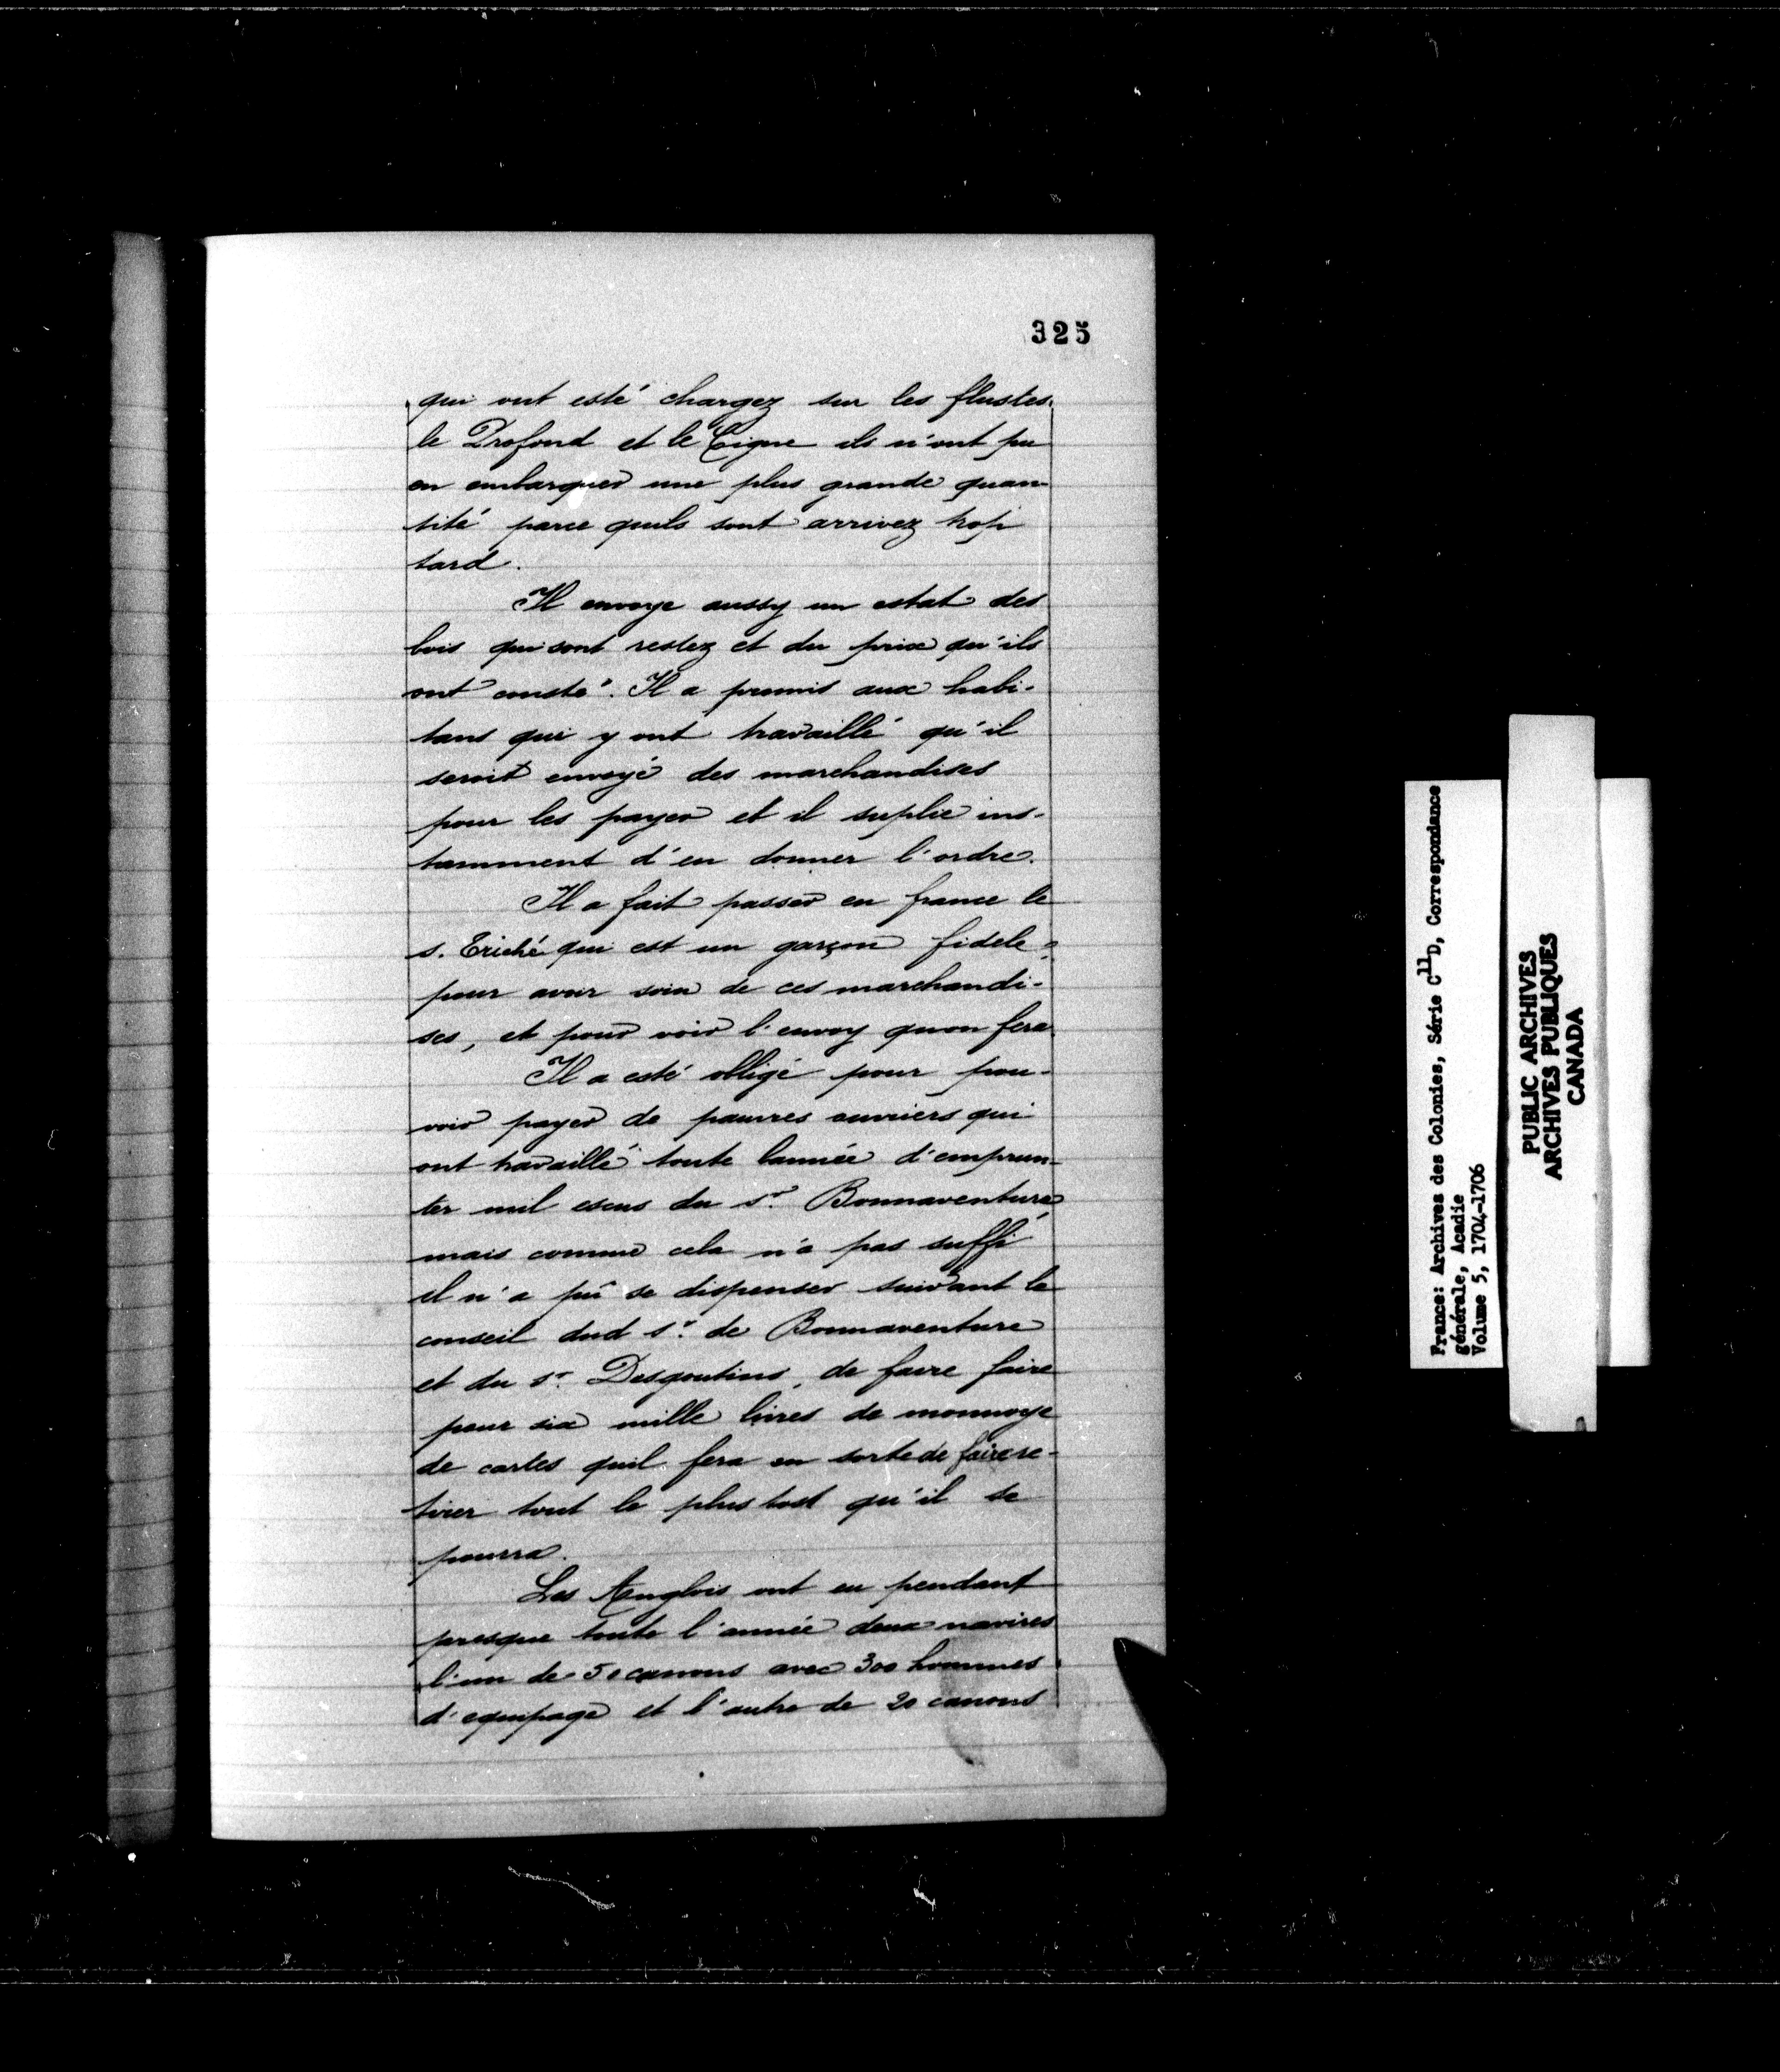 325
qui ont esté chargez sur les flustes
le Profond et le Cigne ils n'ont pu
en embarquer une plus grande quan-
tité parce quils sont arrivez trop
tard.
Il envoye aussy un estat des
bois qui sont restez et du prix qu'ils
ont cousté. Il a promis aux habi-
tans qui y ont travaillé qu'il
seroit envoyé des marchandises
pour les payer et il suplie ins-
tamment d'en donner l'ordre.
Il a fait passer en france le
s. Triché qui est un garçon fidele
pour avoir soin de ces marchandi-
ses, et pour voir l'envoy quon fera
Il a esté obligé pour pou-
voir payer de pauvres ouvriers qui
ont travaillé toute lannée d'emprun-
ter mil escus du sr. Bonnaventure
mais comme cela n'a pas suffi
il n'a pû se dispenser suivant le
conseil dud sr. de Bonnaventure
et du sr. Desgoutins, de faire faire
pour six mille livres de monnoye
de cartes quil fera en sorte de faire re-
tirer tout le plus tost qu'il se
pourra.
Les Anglois ont eu pendant
presque toute l'année deux navires
l'un de 50 canons avec 300 hommes
d'equipage et l'autre de 20 canons
France: Archives des Colonies, Série C11D, Correspondance
générale, Acadie
Volume 5, 1704-1706
PUBLIC ARCHIVES
ARCHIVES PUBLIQUES
CANADA